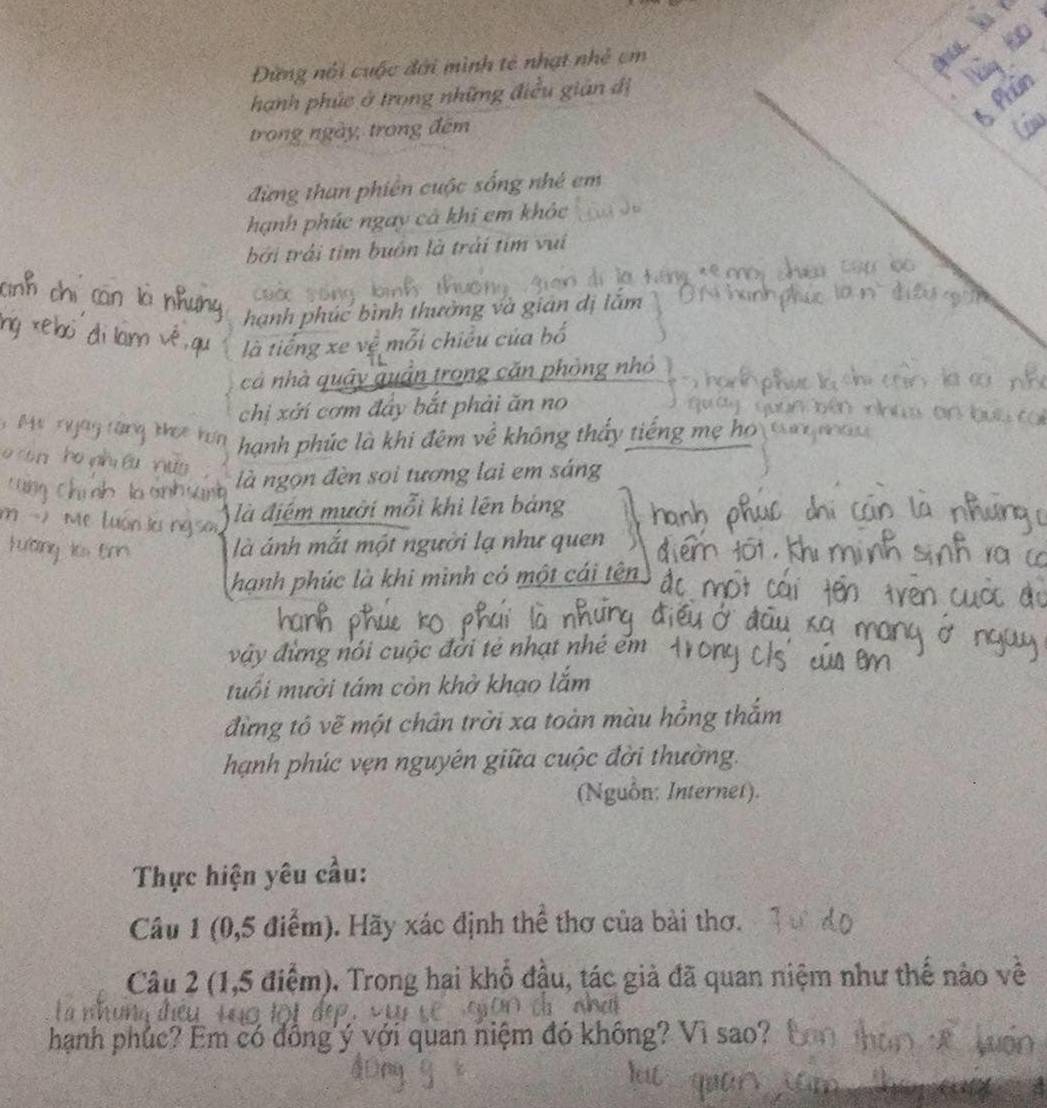 Đừng nói cuộc đời mình tẻ nhạt nhé em
hạnh phúc ở trong những điều giản dị
trong ngày, trong đêm
đừng than phiền cuộc sống nhé em
hạnh phúc ngay cả khi em khóc
bởi trái tim buồn là trái tim vui
cuộc sống bình thường giản dị là tiếng xe mỗi chiều của bố
chỉ cần là những
hạnh phúc bình thường và giản dị lắm
xe bố đi làm về, qu
là tiếng xe về mỗi chiều của bố
cả nhà quây quần trong căn phòng nhỏ
hạnh phúc là chỉ cần là cả nhà
chị xới cơm đầy bắt phải ăn no
quây quần bên nhau ăn bữa cơm
hạnh phúc là khi đêm về không thấy tiếng mẹ ho
cùng nhau
là ngọn đèn soi tương lai em sáng
cũng chính là ánh sáng
là điểm mười mỗi khi lên bảng
hạnh phúc chỉ cần là những
mẹ luôn là ng soi
là ánh mắt một người lạ như quen
điểm tốt. Khi mình sinh ra có
tương lai em
hạnh phúc là khi mình có một cái tên
đc một cái tên trên cuộc đờ
hạnh phúc ko phải là những điều ở đâu xa mang ở ngay
vậy đừng nói cuộc đời tẻ nhạt nhé em
trong c/s của em
tuổi mười tám còn khờ khạo lắm
đừng tô vẽ một chân trời xa toàn màu hồng thắm
hạnh phúc vẹn nguyên giữa cuộc đời thường.
(Nguồn: Internet).
Thực hiện yêu cầu:
Câu 1 (0,5 điểm). Hãy xác định thể thơ của bài thơ. Tự do
Câu 2 (1,5 điểm). Trong hai khổ đầu, tác giả đã quan niệm như thế nào về
là những điều tốt đẹp, vui vẻ giản dị nhất
hạnh phúc? Em có đồng ý với quan niệm đó không? Vì sao? luôn
đồng ý
lạc quan